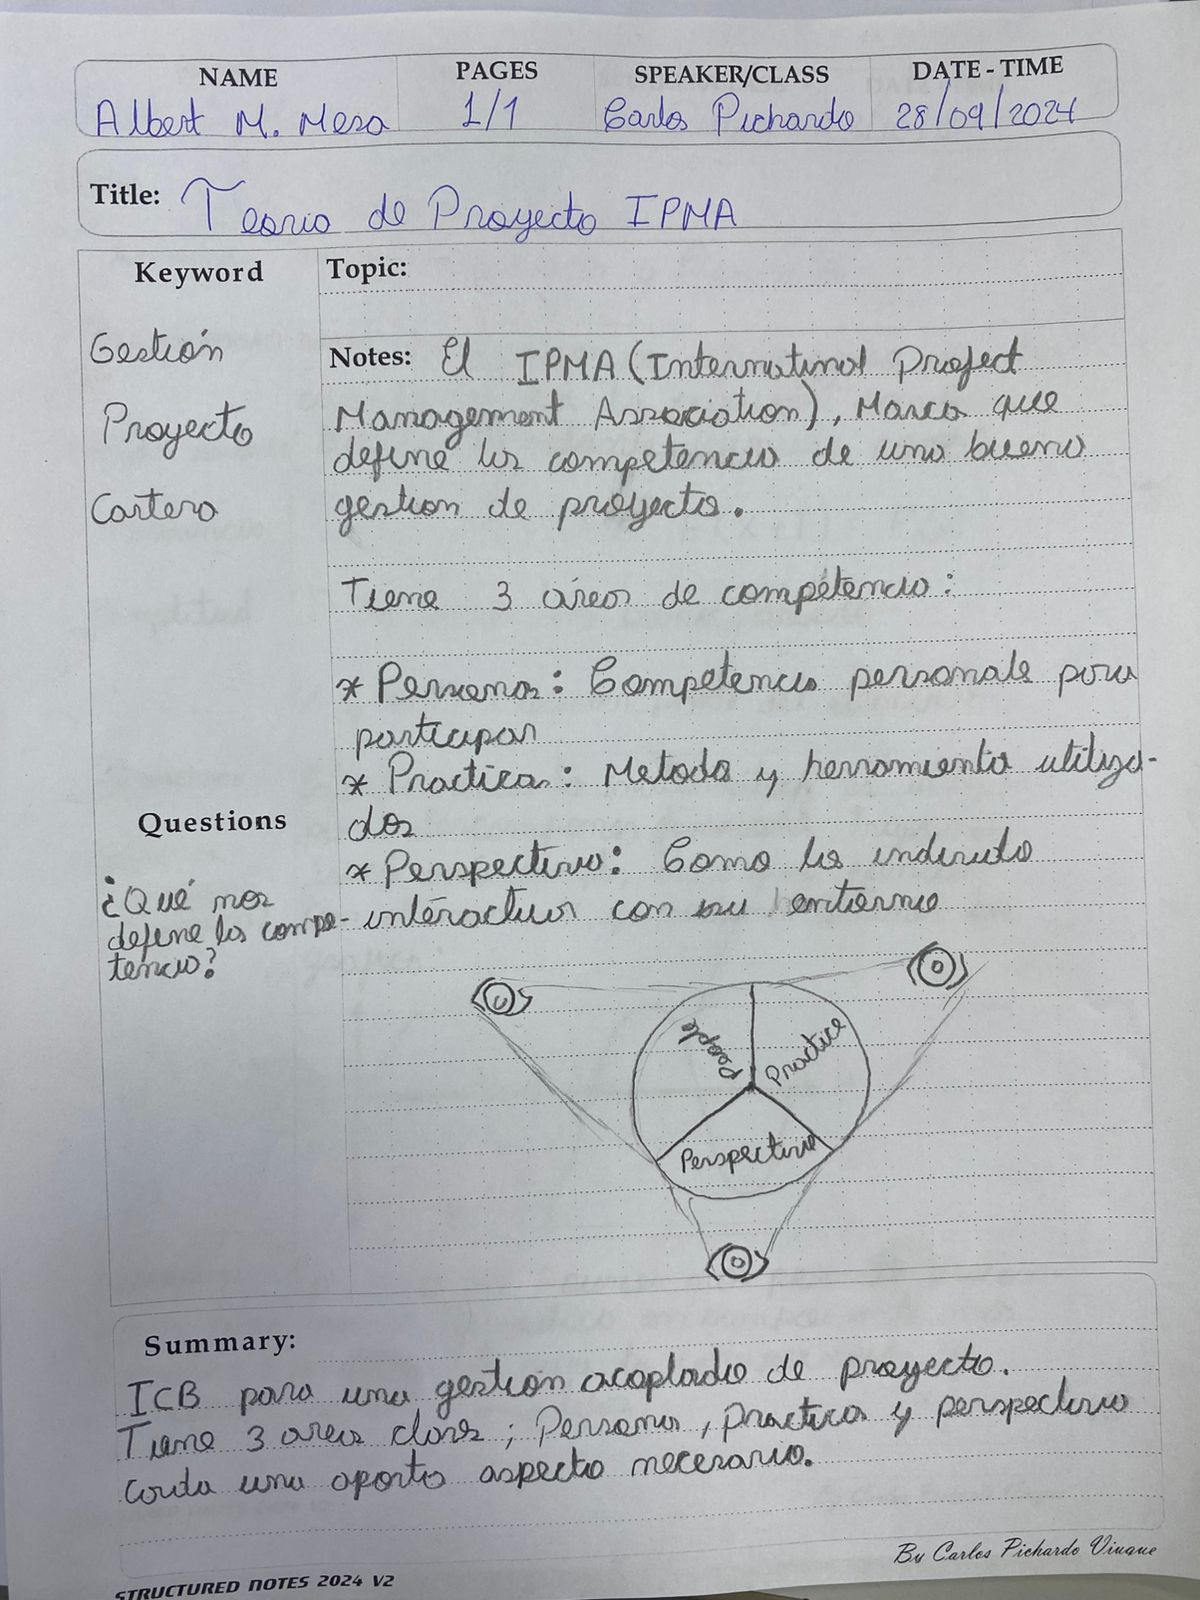 NAME PAGES SPEAKER/CLASS DATE - TIME
Albert M. Mesa 1/1 Carlos Pichardo 28/09/2024
Title: Teoria de Proyecto IPMA
Keyword
Gestión
Proyecto
Cartera
Topic:
Notes: El IPMA (Internatinal Project
Management Association), Marca que
define las competencias de una buena
gestion de proyecto.
Tiene 3 áreas de competencia:
* Personas: Competencias personals para
participar
* Practicas: Metodo y herramienta utiliza-
dos
* Perspectiva: Como los individuo
interactuar con su entorno
Questions
¿Qué nos
define las compe-
tencia?
People
Practice
Perspectiva
Summary:
ICB para una gestion acoplada de proyecto.
Tiene 3 areas clave; Personas, practica y perspectiva
cada una aporta aspecto necesario.
By Carlos Pichardo Viuque
STRUCTURED NOTES 2024 V2